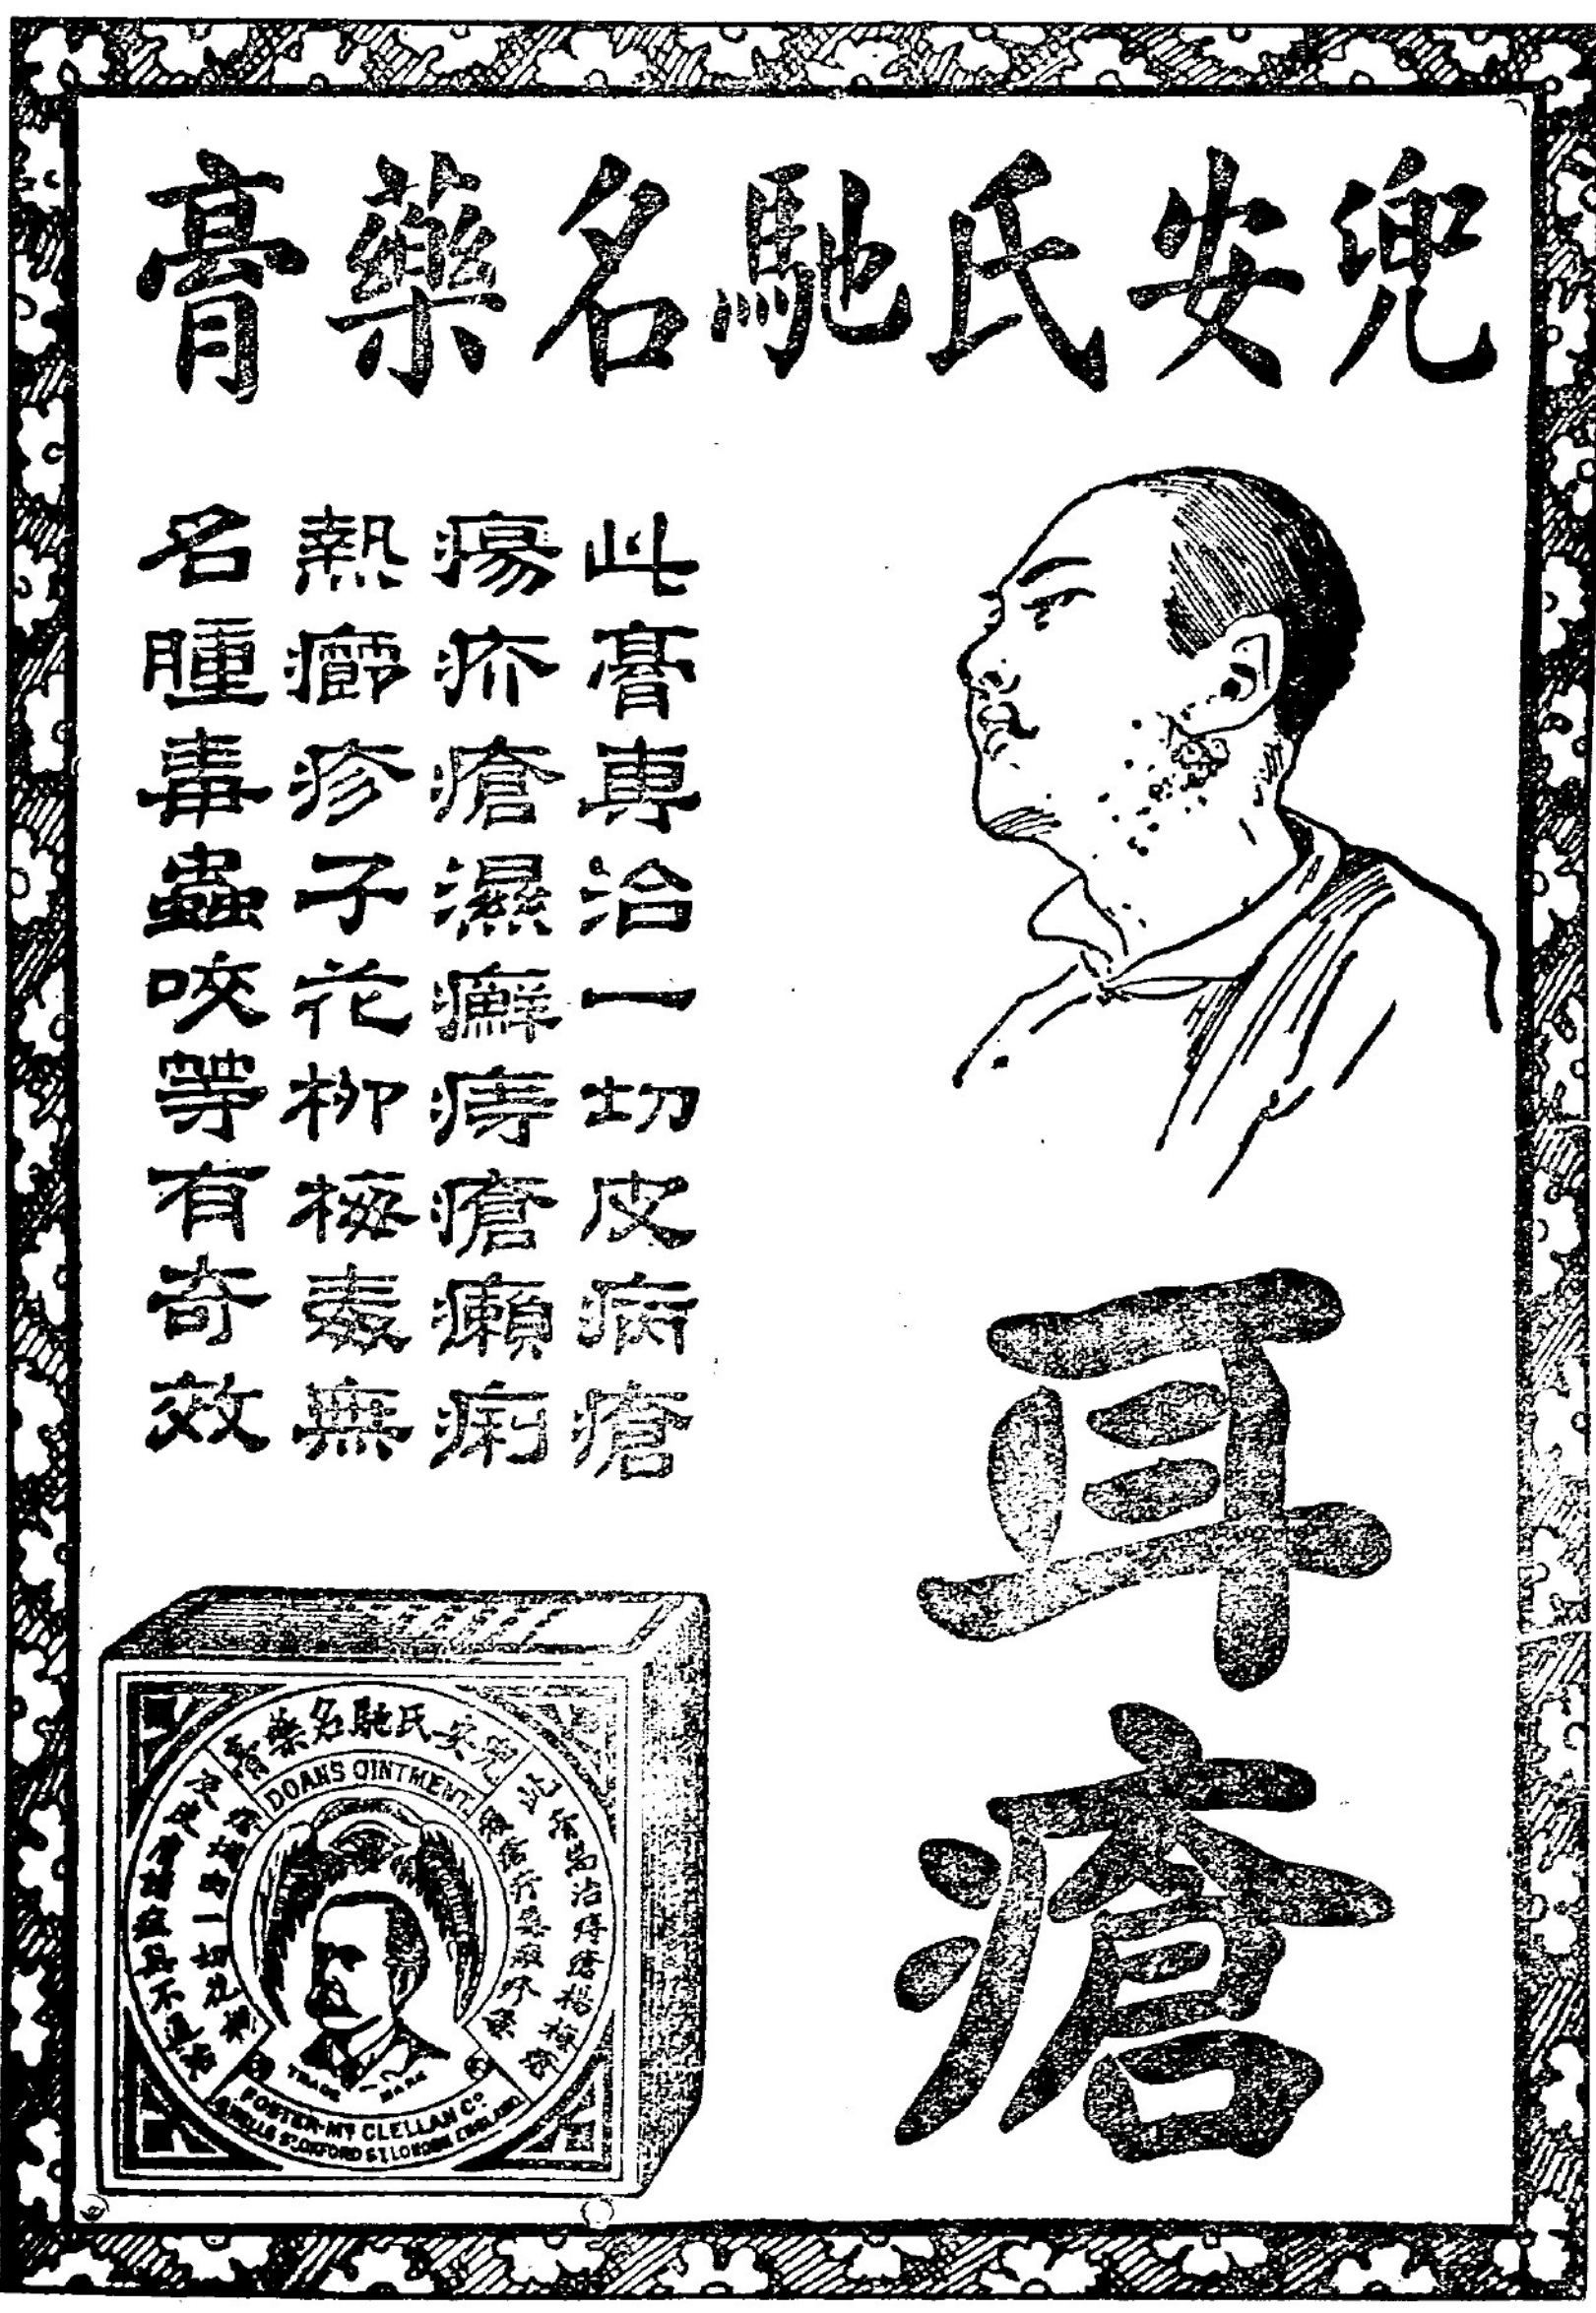 兜安氏馳名藥膏
耳瘡
此膏專治一切皮病瘡
瘍疥瘡濕癬痔瘡癩痢
熱癤疹子花柳梅毒無
名腫毒蟲咬等有奇效
兜安氏馳名藥膏
DOANS OINTMENT
TRADE MARK
FOSTER-Mc CLELLAN Co.
WELLS ST. OXFORD ST. LONDON ENGLAND